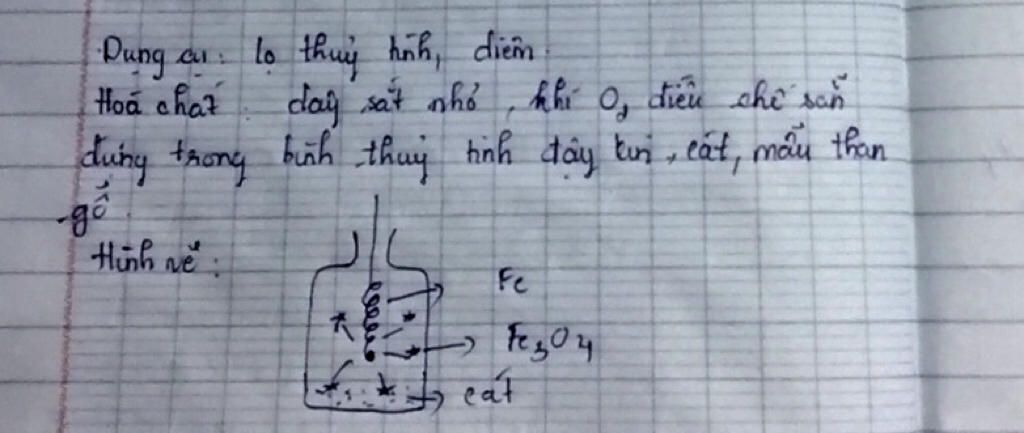 Dụng cụ: lọ thuỷ tinh, diêm.
Hoá chất: dây sắt nhỏ, khí O₂ điều chế sẵn
đựng trong bình thuỷ tinh đậy kín, cát, mẩu than
gỗ.
Hình vẽ:
Fe
Fe₃O₄
cát